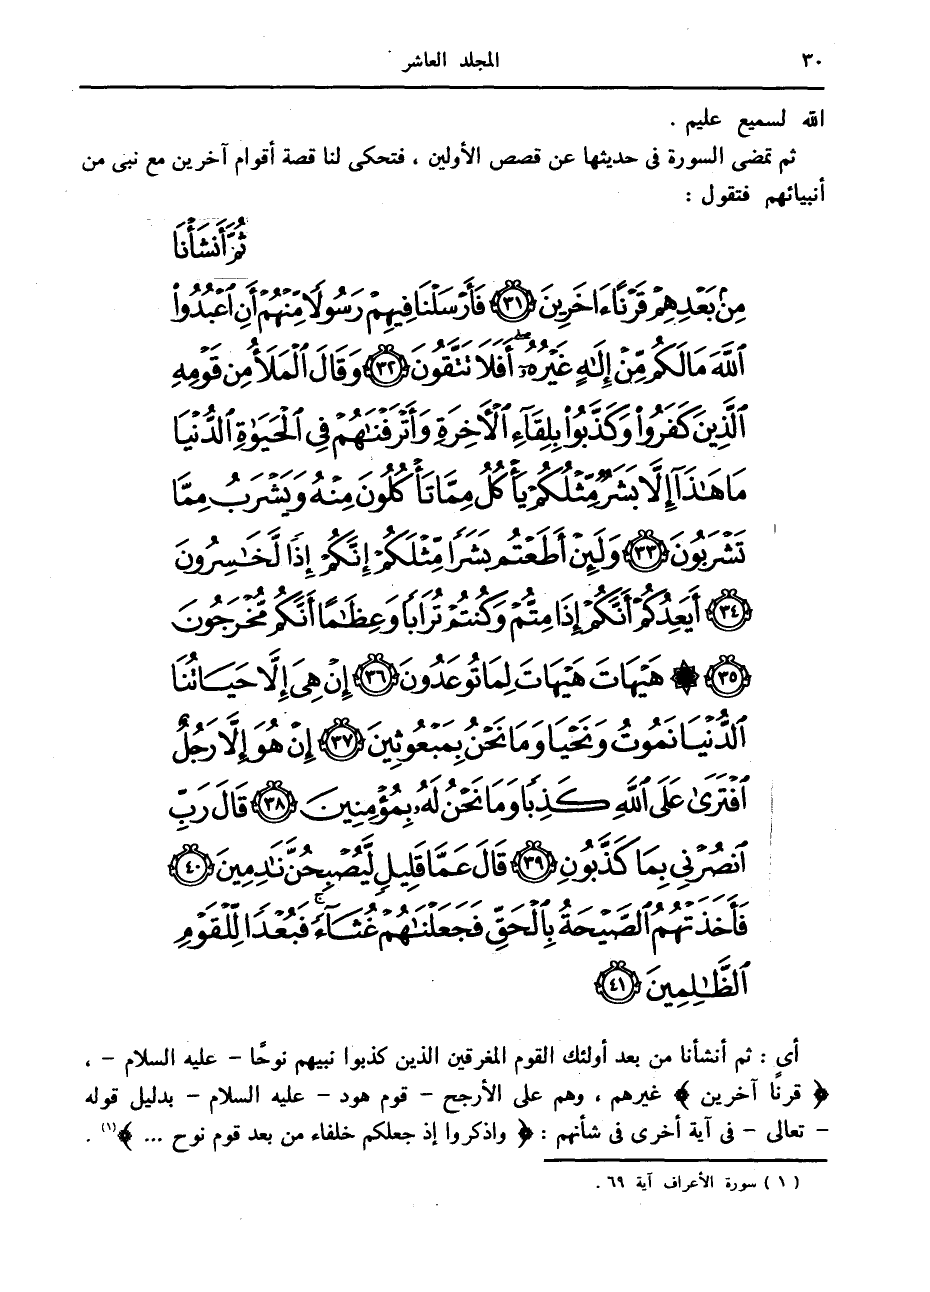 ٣٠ المجلد العاشر
الله لسميع عليم .
ثم تمضى السورة فى حديثها عن قصص الأولين ، فتحكى لنا قصة أقوام آخرين مع نبى من
أنبيائهم فتقول :
ثُمَّ أَنشَأْنَا
مِنۢ بَعْدِهِمْ قَرْنًا ءَاخَرِينَ ﴿٣١﴾ فَأَرْسَلْنَا فِيهِمْ رَسُولًا مِّنْهُمْ أَنِ ٱعْبُدُوا۟
ٱللَّهَ مَا لَكُم مِّنْ إِلَٰهٍ غَيْرُهُۥٓ ۖ أَفَلَا تَتَّقُونَ ﴿٣٢﴾ وَقَالَ ٱلْمَلَأُ مِن قَوْمِهِ
ٱلَّذِينَ كَفَرُوا۟ وَكَذَّبُوا۟ بِلِقَآءِ ٱلْأَخِرَةِ وَأَتْرَفْنَٰهُمْ فِى ٱلْحَيَوٰةِ ٱلدُّنْيَا
مَا هَٰذَآ إِلَّا بَشَرٌ مِّثْلُكُمْ يَأْكُلُ مِمَّا تَأْكُلُونَ مِنْهُ وَيَشْرَبُ مِمَّا
تَشْرَبُونَ ﴿٣٣﴾ وَلَئِنْ أَطَعْتُم بَشَرًا مِّثْلَكُمْ إِنَّكُمْ إِذًا لَّخَٰسِرُونَ
﴿٣٤﴾ أَيَعِدُكُمْ أَنَّكُمْ إِذَا مِتُّمْ وَكُنتُمْ تُرَابًا وَعِظَٰمًا أَنَّكُم مُّخْرَجُونَ
﴿٣٥﴾ ۞ هَيْهَاتَ هَيْهَاتَ لِمَا تُوعَدُونَ ﴿٣٦﴾ إِنْ هِىَ إِلَّا حَيَاتُنَا
ٱلدُّنْيَا نَمُوتُ وَنَحْيَا وَمَا نَحْنُ بِمَبْعُوثِينَ ﴿٣٧﴾ إِنْ هُوَ إِلَّا رَجُلٌ
ٱفْتَرَىٰ عَلَى ٱللَّهِ كَذِبًا وَمَا نَحْنُ لَهُۥ بِمُؤْمِنِينَ ﴿٣٨﴾ قَالَ رَبِّ
ٱنصُرْنِى بِمَا كَذَّبُونِ ﴿٣٩﴾ قَالَ عَمَّا قَلِيلٍ لَّيُصْبِحُنَّ نَٰدِمِينَ ﴿٤٠﴾
فَأَخَذَتْهُمُ ٱلصَّيْحَةُ بِٱلْحَقِّ فَجَعَلْنَٰهُمْ غُثَآءً ۚ فَبُعْدًا لِّلْقَوْمِ
ٱلظَّٰلِمِينَ ﴿٤١﴾
أى : ثم أنشأنا من بعد أولئك القوم المغرقين الذين كذبوا نبيهم نوحًا – عليه السلام – ،
﴿ قرنًا آخرين ﴾ غيرهم ، وهم على الأرجح – قوم هود – عليه السلام – بدليل قوله
– تعالى – فى آية أخرى فى شأنهم : ﴿ واذكروا إذ جعلكم خلفاء من بعد قوم نوح ... ﴾(١) .
(١) سورة الأعراف آية ٦٩ .